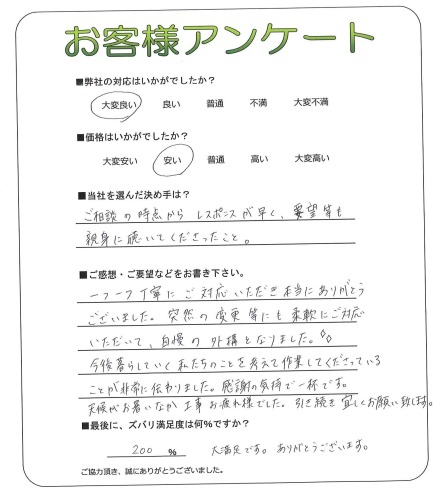 お客様アンケート
■弊社の対応はいかがでしたか?
大変良い 良い 普通 不満 大変不満
■価格はいかがでしたか?
大変安い 安い 普通 高い 大変高い
■当社を選んだ決め手は?
ご相談の時点から レスポンスが早く、要望等も
親身に聴いてくださったこと。
■ご感想・ご要望などをお書き下さい。
一つ一つ丁寧にご対応いただき本当にありがとう
ございました。突然の変更等にも柔軟にご対応
いただいて、自慢の外構となりました。
今後暮らしていく私たちのことを考えて作業してくださっている
ことが非常に伝わりました。感謝の気持で一杯です。
天候がお暑いなか工事お疲れ様でした。引き続き宜しくお願い致します。
■最後に、ズバリ満足度は何%ですか?
200 % 大満足です。ありがとうございます。
ご協力頂き、誠にありがとうございました。